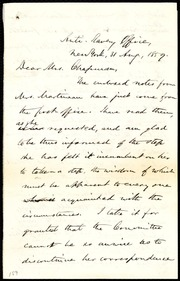 Anti-Slavery Office,
New York, 31 Aug., 1859.
Dear Mrs. Chapman,
The enclosed notes from
Mrs Martineau have just come from
the post office. I have read them,
as she
requested, and am glad
to be thus informed of the step
she has felt it incumbent on her
to take—a step, the wisdom of which
must be apparent to every one
acquainted with the
circumstances. I take it for
granted that the Committee
cannot be so unwise as to
discontinue her correspondence